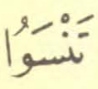 تَنْسَوُا